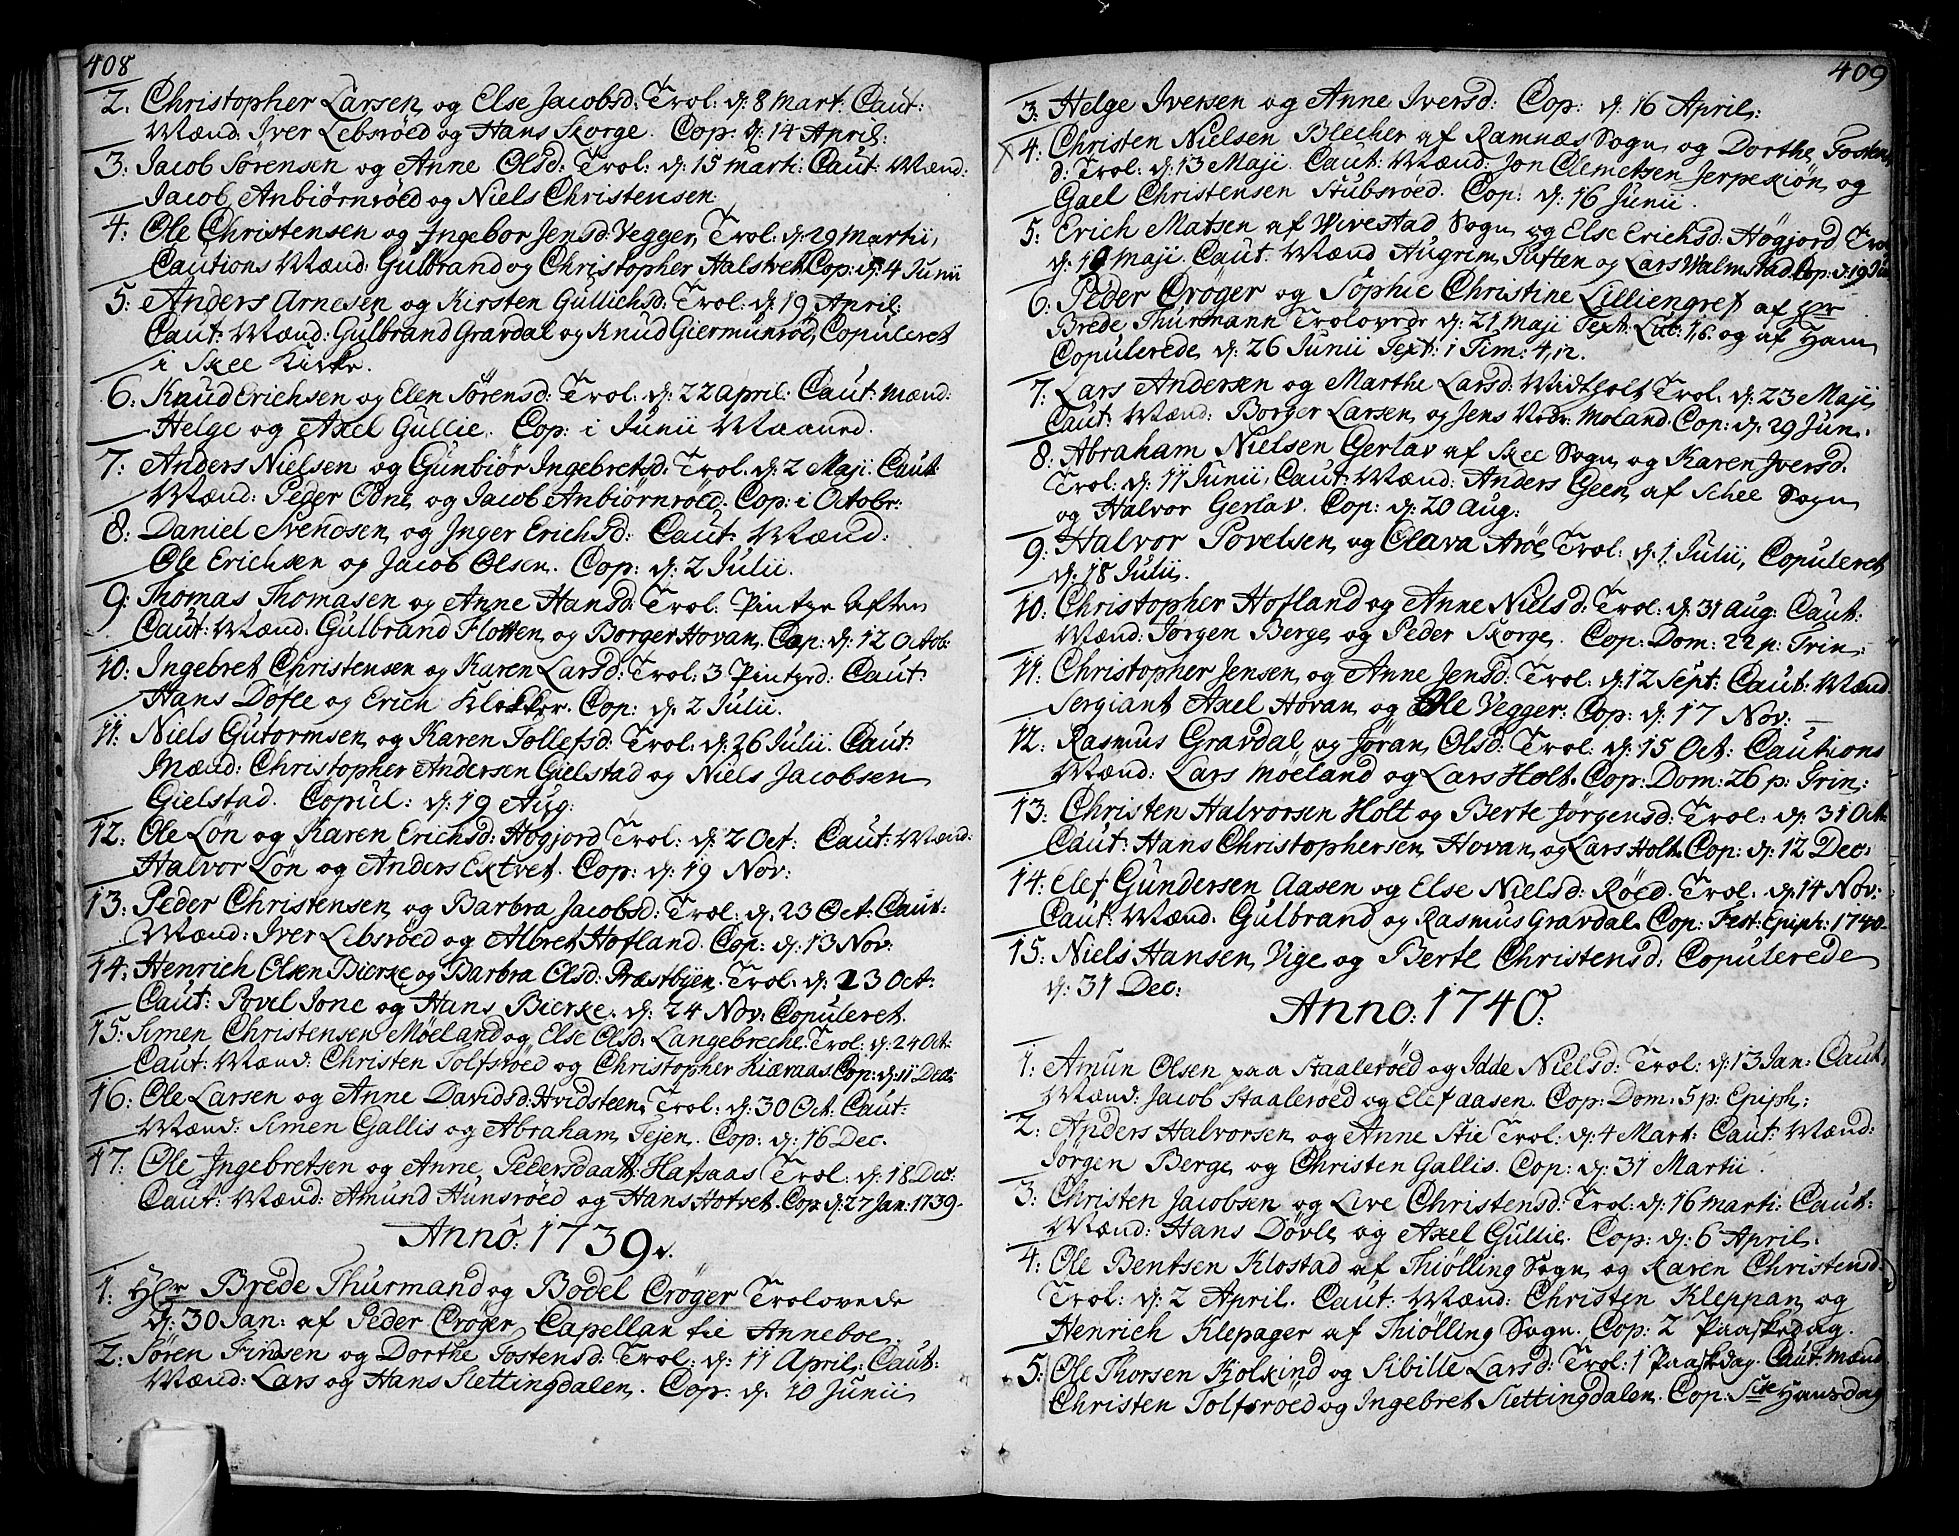 408
2. Christopher Larsen og Else Jacobsd: Trol: d: 8 Mart: Caut:
Mænd: Iver Lebsröed og Hans Skorge. Cop: d: 14 April:
3: Jacob Sörensen og Anne Olsd: Trol: d: 15 Marti: Caut: Mænd:
Jacob Anbiörnröed og Niels Christensen
4: Ole Christensen og Ingebor Jensd: Vegger, Trol: d: 29 Martii,
Cautions Mænd: Gulbrand og Christopher Halstvet Cop: d: 4 Junii
5: Anders Arnesen og Kirsten Gullichsd: Trol: d: 19 April:
Caut: Mænd: Gulbrand Gravdal og Knud Giermunröd, Copuleret
i Skee Kirke.
6: Knud Erichsen og Elen Sörensd: Trol: d: 22 April: Caut: Mænd:
Helge og Axel Gullie. Cop: i Junii Maaned.
7: Anders Nielsen og Gunbiör Ingebretsd: Trol: d: 2 Maji Caut:
Mænd: Peder Odne og Jacob Anbiörnröed: Cop: i Octobr:
8: Daniel Svendsen og Inger Erichsd: Caut: Mænd:
Ole Erichsen og Jacob Olsen. Cop: d: 2 Julii.
9: Thomas Thomasen og Anne Hansd: Trol: Pintze Aften
Caut: Mænd: Gulbrand Flotten og Borger Hovan. Cop: d: 12 Octob:
10: Ingebret Christensen og Karen Larsd: Trol: 3 Pintzed: Caut:
Hans Döfle og Erich Klokker. Cop: d: 2 Julii.
11: Niels Gutormsen og Karen Tollefsd: Trol: d: 26 Julii. Caut:
Mænd: Christopher Andersen Gielstad og Niels Jacobsen
Gielstad. Copul: d: 19 Aug:
12: Ole Lön og Karen Erichsd: Högjord Trol: d: 2 Oct: Caut: Mænd:
Halvor Lön og Anders Extvet. Cop: d: 19 Nov:
13: Peder Christensen og Barbra Jacobsd: Trol: d: 23 Oct: Caut:
Mænd: Iver Lebsröed og Albret Hofland. Cop: d: 13 Nov:
14: Henrich Olsen Bierke og Barbra Olsd: Præstbyen. Trol: d: 23 Oct:
Caut: Povel Ione og Hans Bierke. d: 24 Nov: Copuleret.
15: Simen Christensen Möeland og Else Olsd: Langebreche. Trol: d: 24 Oct:
Caut: Mænd: Christen Tolfsröed og Christopher Kiæraas Cop: d: 11 Dec:
16: Ole Larsen og Anne Davidsd: Hvidsteen Trol: d: 30 Oct. Caut:
Mænd: Simen Gallis og Abraham Tejen. Cop: d: 16 Dec.
17: Ole Ingebretsen og Anne Pedersdaatt: Hafsaas Trol: d: 18 Dec:
Caut: Mænd: Amund Hunsröed og Hans Hotvet. Cop: d: 27 Jan: 1739.
Anno: 1739.
1: Hr Brede Thurmand og Bodel Cröger Trolovede
d: 30 Jan: af Peder Cröger Capellan til Anneboe:
2: Sören Findsen og Dorthe Tostensd: Trol: d: 11 April: Caut:
Mænd: Lars og Hans Slettingdalen. Cop: d: 10 Junii
409
3: Helge Iversen og Anne Iversd: Cop: d: 16 April:
4: Christen Nielsen Blecher af Ramnæs Sogn og Dorthe Tosten
d: Trol: d: 13 Maji. Caut: Mænd: Jon Clemetsen Jerpekiön og
Gael Christensen Stubsröed. Cop: d: 16 Junii.
5: Erich Matsen af Vivestad Sogn og Else Erichsd: Högjord Trol
d: 19 Maji. Caut: Mænd Augrim Tuften og Lars Valmstad Cop: d: 19 Jun
6: Peder Cröger og Sophie Christine Lilliengref af Hr
Brede Thurmann Trolovede d: 21 Maji Text: Luc: 1,6. og af Ham
Copulerede d: 26 Junii Text: 1 Tim: 4,12.
7: Lars Andersen og Marthe Larsd: Vidtholt Trol. d: 23 Maji
Caut: Mænd: Borger Larsen og Jens Nedr. Moland. Cop: d: 29 Jun.
8: Abraham Nielsen Gerlav af Skee Sogn og Karen Iversd.
Trol: d: 11 Junii, Caut: Mænd: Anders Geen af Schee Sogn
og Halvor Gerlav. Cop: d: 20 Aug:
9: Halvor Povelsen og Olava Aröe Trol: d: 1 Julii, Copuleret
d: 18 Julii.
10: Christopher Hofland og Anne Nielsd: Trol: d: 31 Aug: Caut:
Mænd: Jörgen Berge og Peder Skorge. Cop: Dom: 22 p: Trin:
11: Christopher Jensen og Anne Jensd: Trol: d: 12 Sept: Caut: Mænd
Sergiant Axel Hovan og Ole Vegger: Cop: d: 17 Nov:
12: Rasmus Gravdal og Jöran Olsd: Trol: d: 15 Oct: Cautions
Mænd: Lars Möeland og Lars Holt. Cop: Dom: 26 p: Trin:
13: Christen Halvorsen Holt og Berte Jörgensd: Trol: d: 31 Oct:
Caut: Hans Christophersen Hovan og Lars Holt Cop: d: 12 Dec:
14: Elef Gundersen Aasen og Else Nielsd: Röed. Trol. d: 14 Nov:
Caut: Mænd: Gulbrand og Rasmus Gravdal. Cop: Fest: Epiph: 1740
15: Niels Hansen Vige og Berte Christensd: Copulerede
d: 31 Dec:
Anno: 1740.
1: Amun Olsen paa Staaleröed og Idde Nielsd: Trol: d: 13 Jan: Caut:
Mænd: Jacob Staaleröed og Elef Aasen. Cop: Dom: 5 p: Epiph:
2: Anders Halvorsen og Anne Stie Trol: d: 4 Mart: Caut: Mænd:
Jörgen Berge og Christen Gallis. Cop: d: 31 Martii
3: Christen Jacobsen og Live Christensd: Trol: d: 16 Marti: Caut:
Mænd: Hans Dövle og Axel Gullie. Cop: d: 6 April.
4: Ole Bentsen Klostad af Thiölling Sogn og Karen Christensd
Trol: d: 2 April. Caut: Mænd: Christen Kleppan og
Henrich Klepager af Thiölling Sogn. Cop: 2 Paaskedag.
5: Ole Thorsen Kolkind og Sibille Larsd: Trol: 1 Paaskdag. Caut: Mænd
Christen Tolfsröed og Ingebret Slettingdalen. Cop: Sete Hansdag